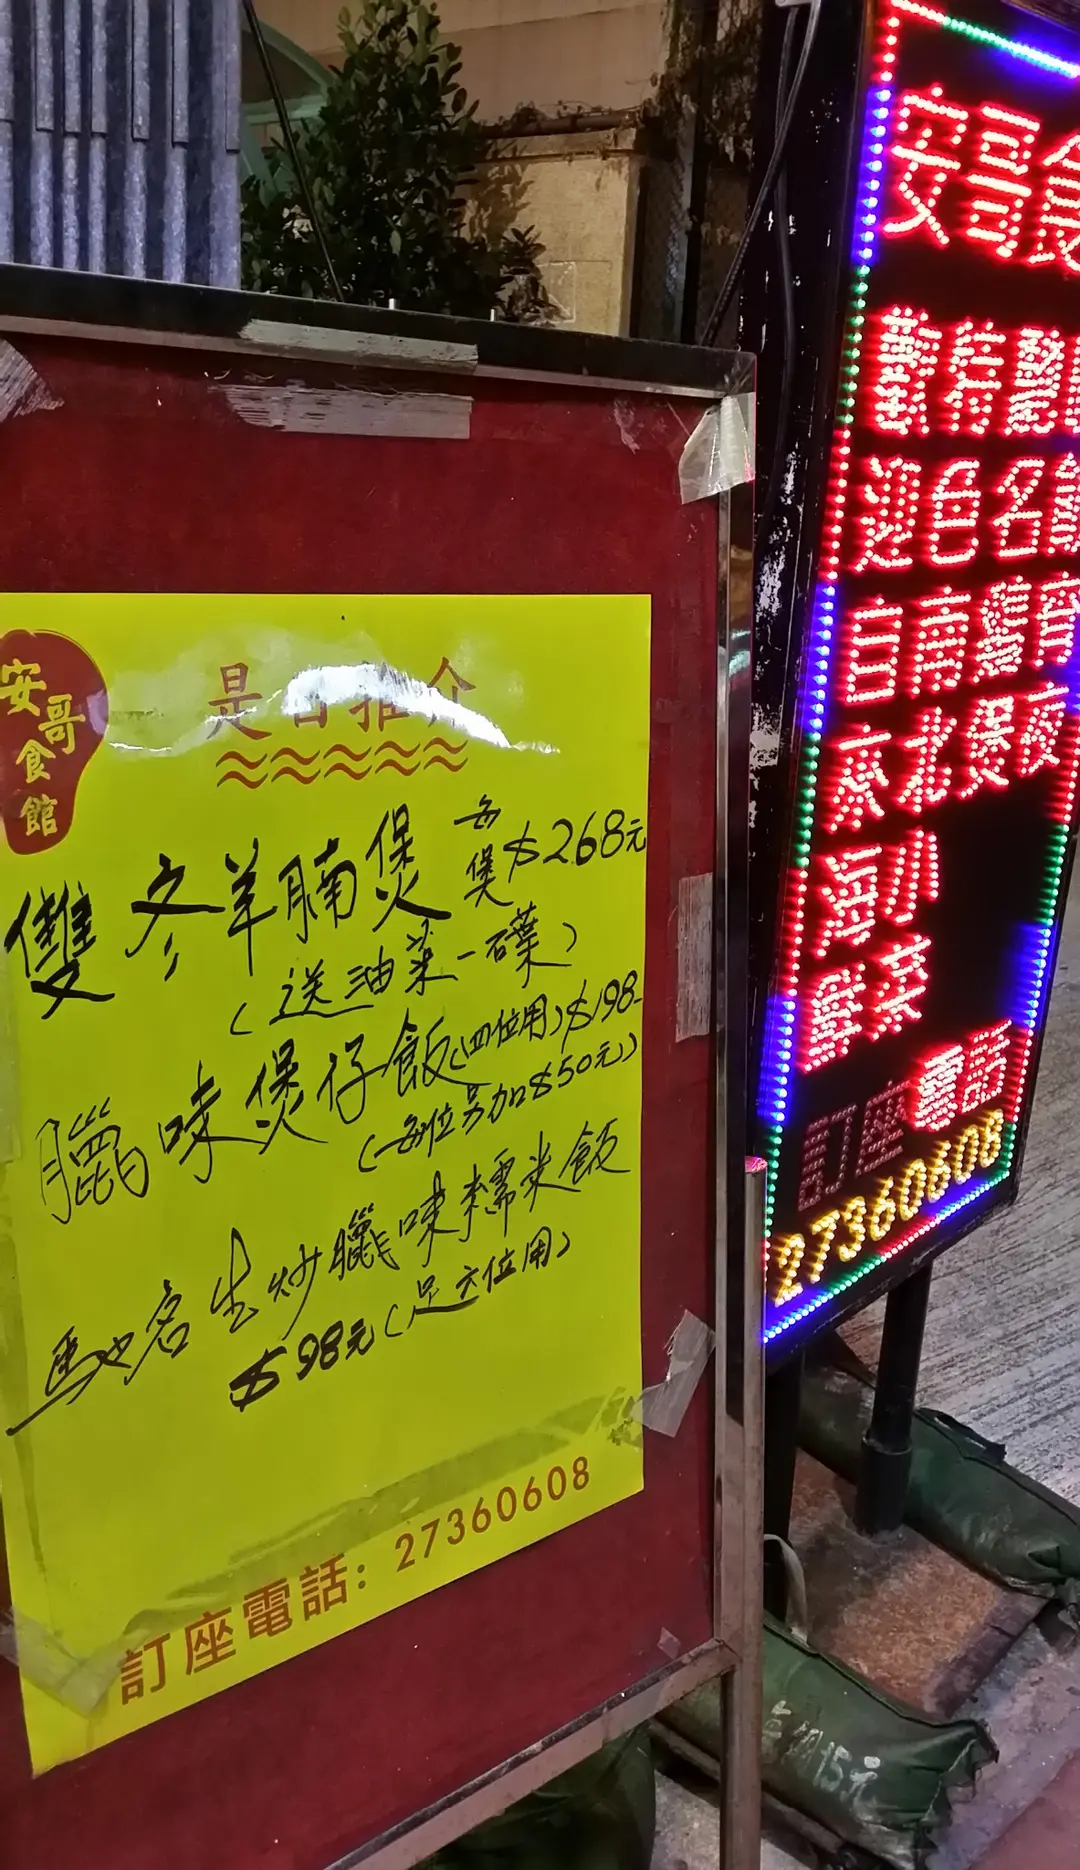 安哥食館
是日推介
雙冬羊腩煲 每煲$268元
(送油菜一碟)
臘味煲仔飯(四位用)$198-
(每位另加$50元)
馳名生炒臘味糯米飯
$98元(足六位用)
訂座電話: 27360608
安哥食
歡迎自來海鮮
特色南北小菜
馳名鷄煲
宵夜
訂座電話
27360608